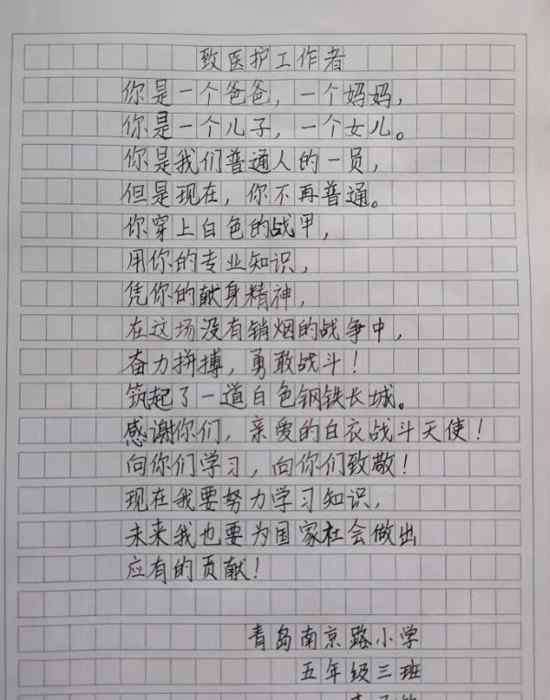 致医护工作者
你是一个爸爸，一个妈妈，
你是一个儿子，一个女儿。
你是我们普通人的一员，
但是现在，你不再普通。
你穿上白色的战甲，
用你的专业知识，
凭你的献身精神，
在这场没有销烟的战争中，
奋力拼搏，勇敢战斗！
筑起了一道白色钢铁长城。
感谢你们，亲爱的白衣战斗天使！
向你们学习，向你们致敬！
现在我要努力学习知识，
未来我也要为国家社会做出
应有的贡献！
青岛南京路小学
五年级三班